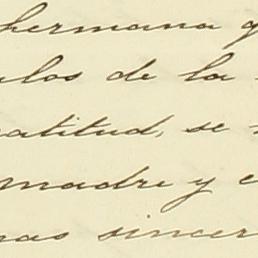 hermana
ulos de la
atitud, se
madre y
mas sincer